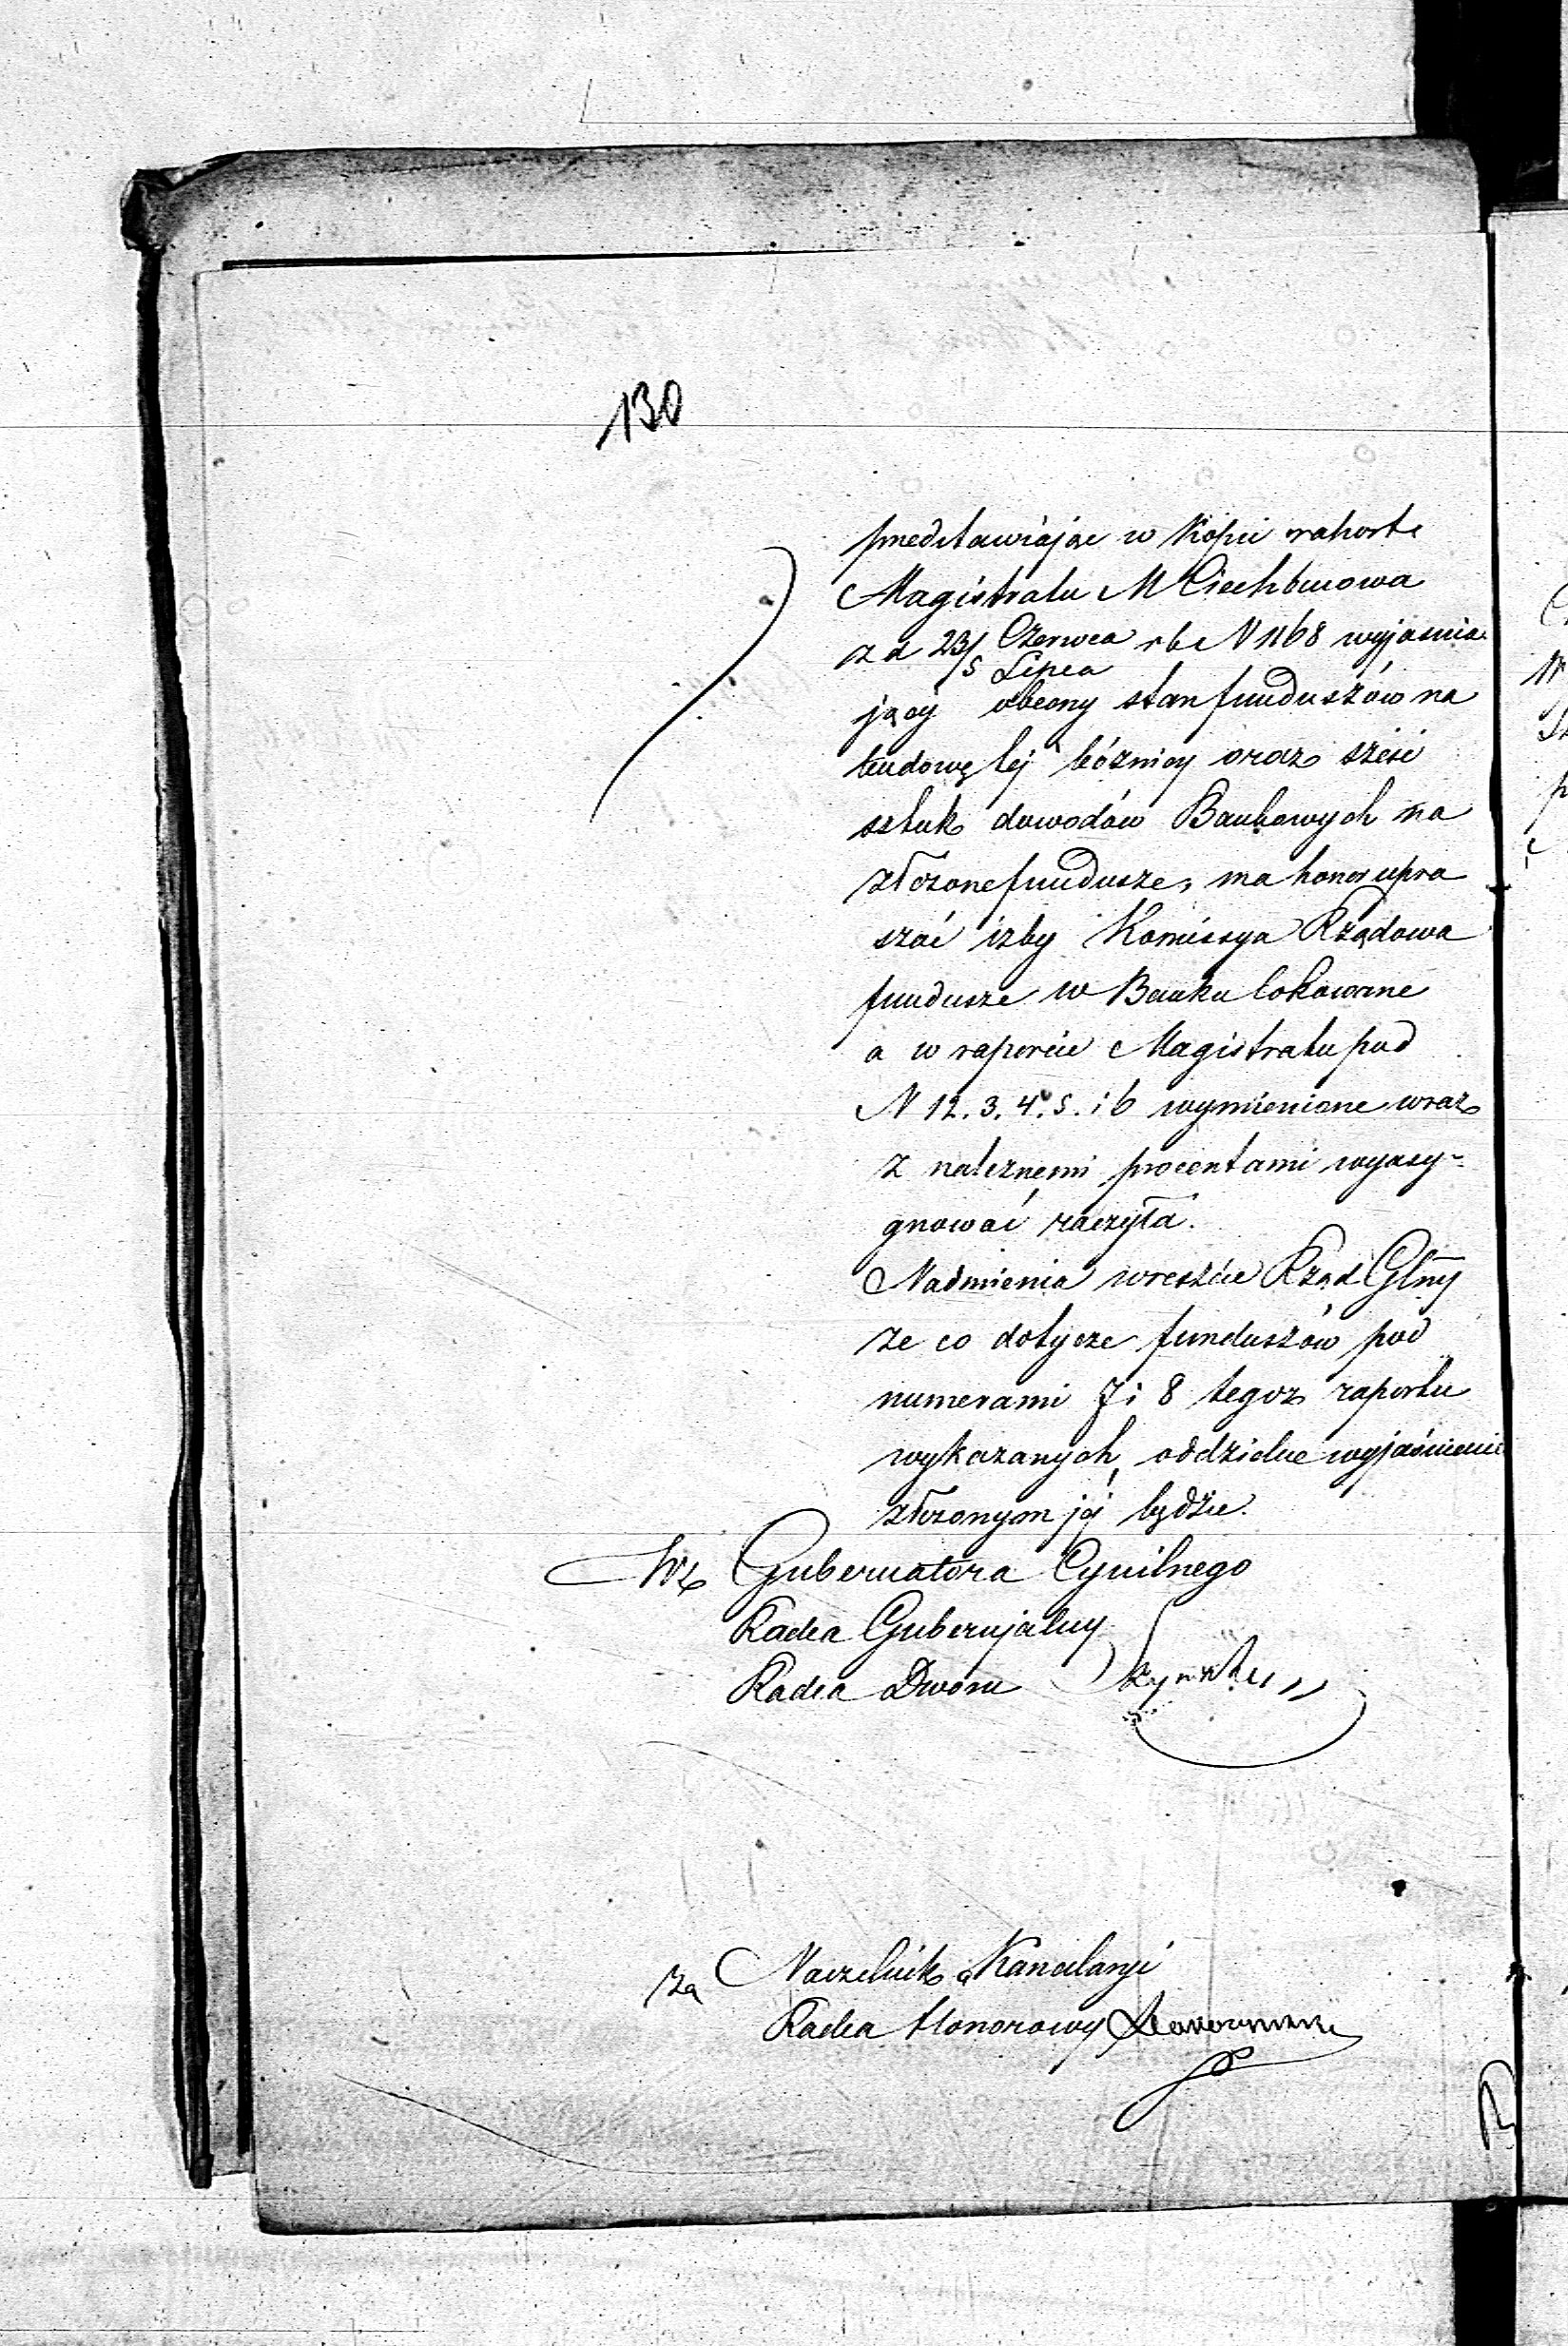 130
przedstawiając w kopii raport
Magistratu M Ciechanowa
z d 23/5 Czerwca/Lipca rb N 1168 wyjaśnia
jący obecny stan funduszów na
budowę tej bóżnicy oraz sześć
sztuk dowodów Bankowych na
złożone fundusze, ma honor upra
szać iżby Komissya Rządowa
fundusze w Banku lokowane
a w raporcie Magistratu pod
N 1 2. 3. 4. 5. i 6 wymienione wraz
z należnemi procentami wyasy-
gnować raczyła.
Nadmienia wreszcie Rząd Glny
że co dotycze funduszów pod
numerami 7 i 8 tegoż raportu
wykazanych, oddzielne wyjaśnienie
złożonym jej będzie.
Wz Gubernatora Cywilnego
Radca Gubernjalny
Radca Dworu
Za Naczelnika Kancelarji
Radca Honorowy